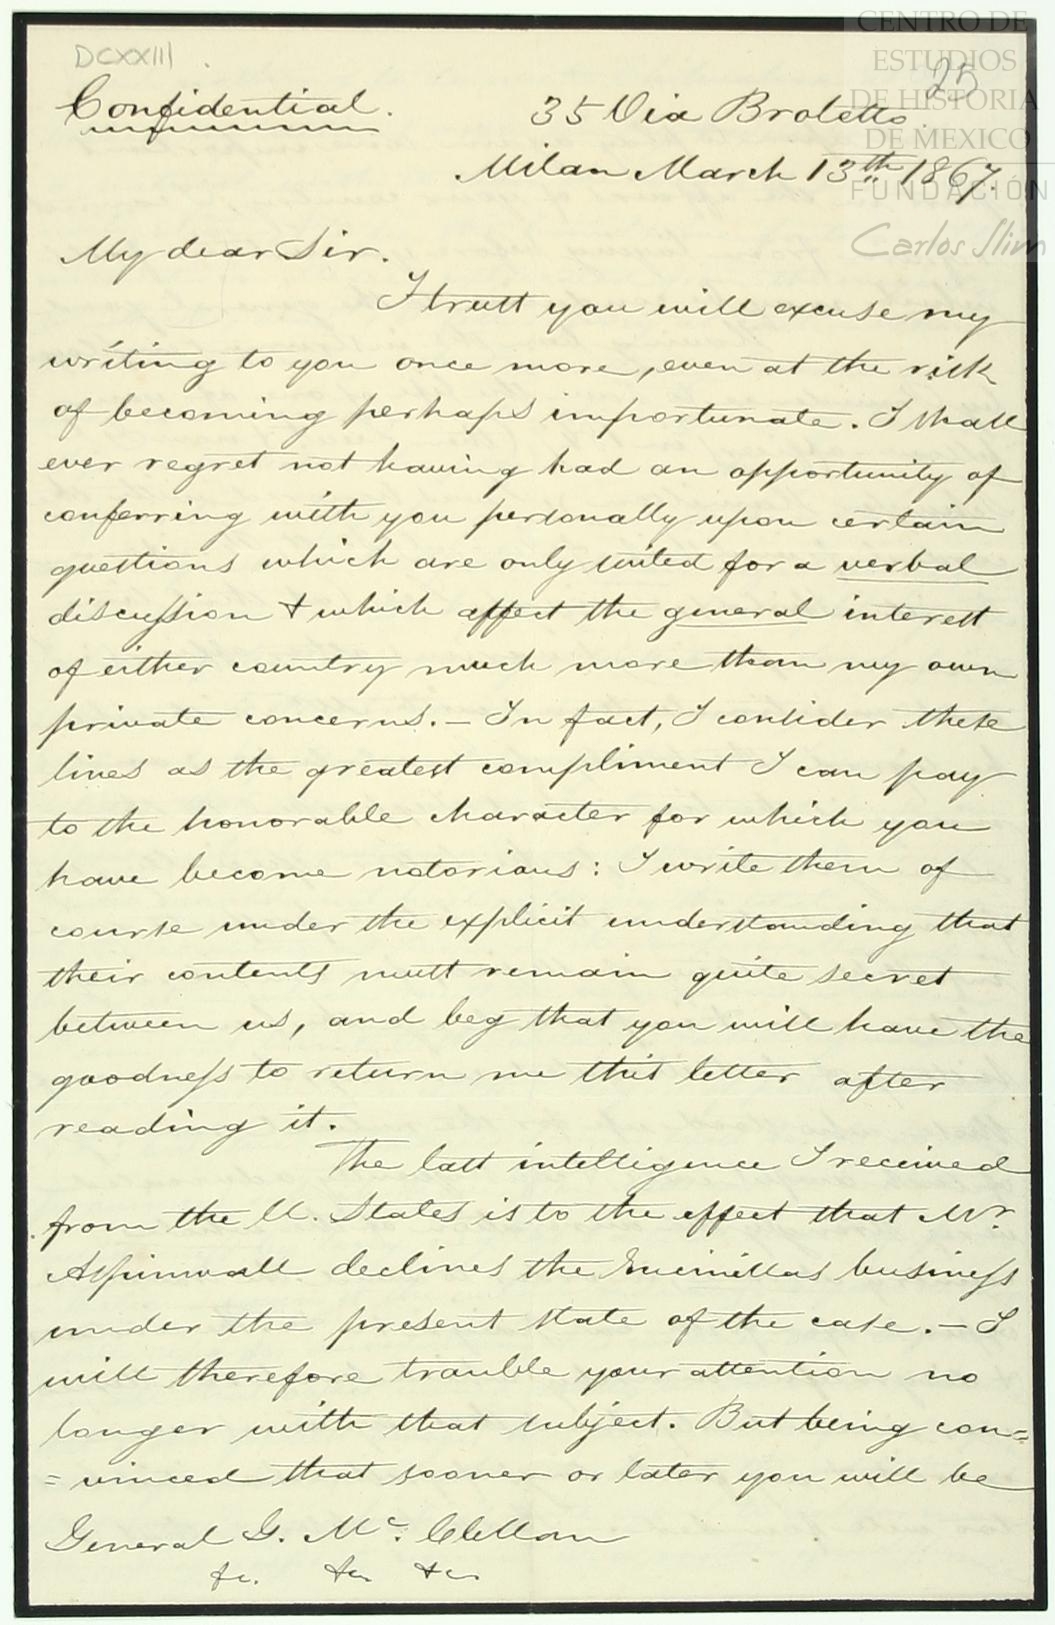 DCXXIII.
25
CENTRO DE
ESTUDIOS
DE HISTORIA
DE MEXICO
FUNDACIÓN
Carlos Slim
Confidential.
35 Via Broletto.
Milan March 13th 1867.
My dear Sir.
I trust you will excuse my
writing to you once more, even at the risk
of becoming perhaps importunate. I shall
ever regret not having had an opportunity of
conferring with you personally upon certain
questions which are only suited for a verbal
discussion & which affect the general interest
of either country much more than my own
private concerns. — In fact, I consider these
lines as the greatest compliment I can pay
to the honorable character for which you
have become notorious: I write them of
course under the explicit understanding that
their contents must remain quite secret
between us, and beg that you will have the
goodness to return me this letter after
reading it.
The last intelligence I received
from the U. States is to the effect that Mr.
Aspinwall declines the business
under the present state of the case. — I
will therefore trouble your attention no
longer with that subject. But being con=
=vinced that sooner or later you will be
General G. Mc. Clellan
&c. &c. &c.